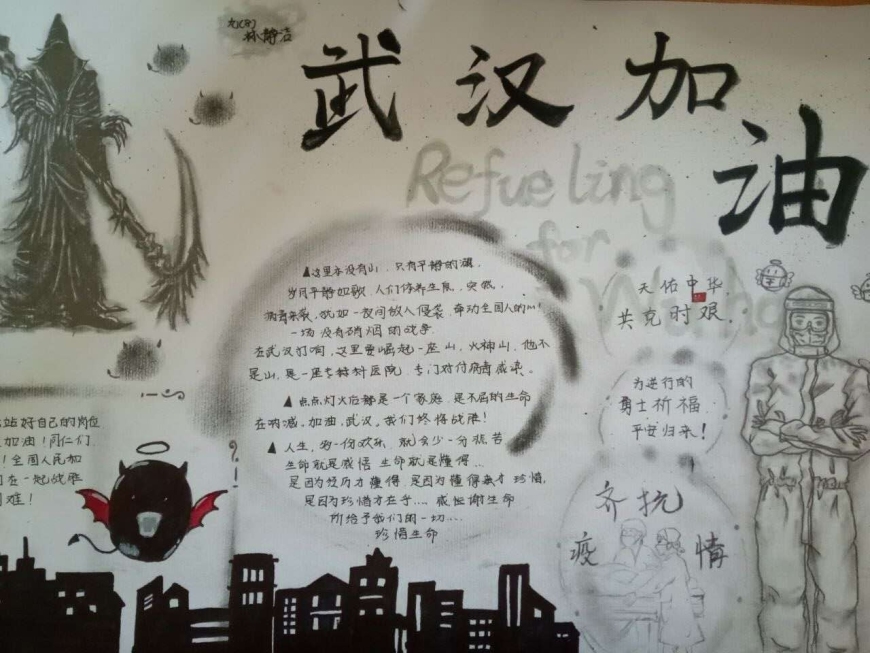 武汉加
油
Refueling
for
Wuhan
▲这里亦没有山，只有平静的湖，
岁月平静如歌，人们休养生息，突然，
病毒来袭，犹如一夜间敌人侵袭，牵动全国人的心！
一场没有硝烟的战争
在武汉打响，这里要崛起一座山，火神山，他不
是山，是一座专科医院，专门对付病毒感染。
▲点点灯火后都是一个家庭，是不屈的生命
在呐喊，加油，武汉，我们终将战胜！
▲人生，多一份欢乐，就会少一分悲苦
生命就是感悟 生命就是懂得…
是因为经历才懂得 是因为懂得才珍惜，
是因为珍惜才在乎…，感恩谢生命
所给予我们的一切…
珍惜生命
天佑中华
共克时艰
为逆行的
勇士祈福
平安归来！
齐抗
疫情
站好自己的岗位
加油！同仁们
！全国人民加
在一起战胜
难！